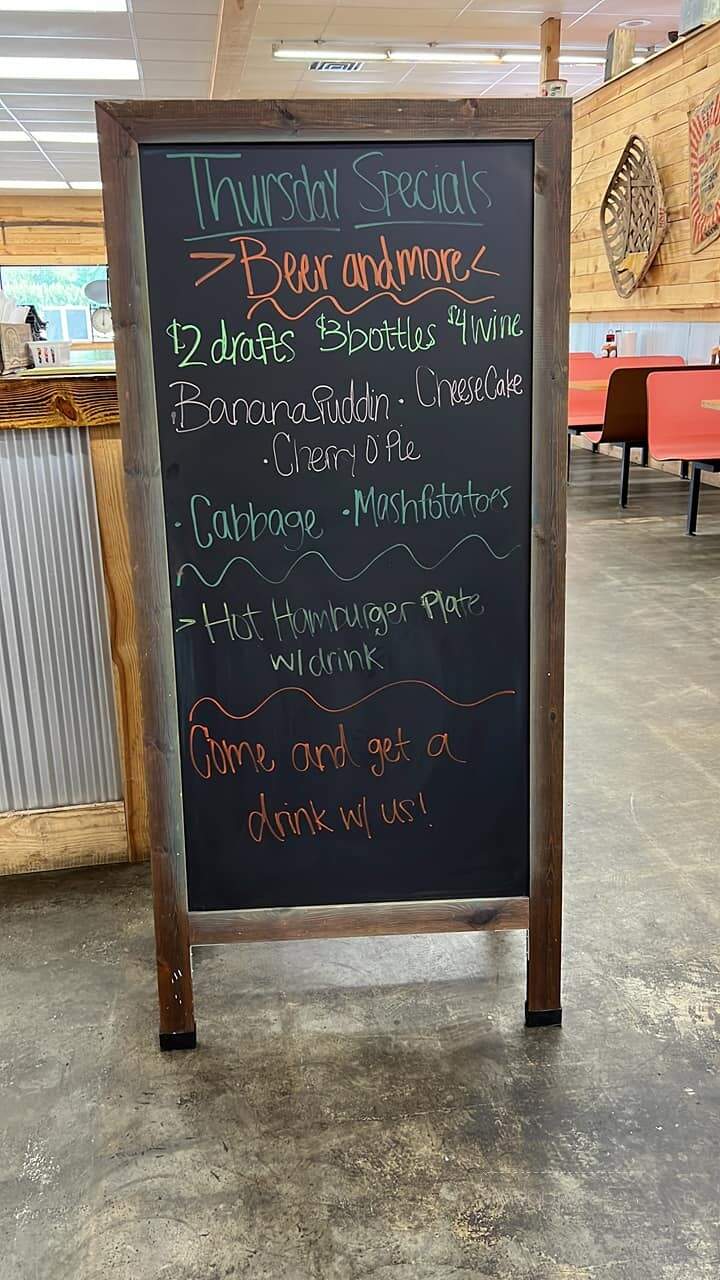 Thursday Specials
>Beer and more<
$2 drafts $3 bottles $4 wine
Banana Puddin · CheeseCake
·Cherry O'Pie
·Cabbage ·MashPotatoes
>Hot Hamburger Plate
w/drink
Come and get a
drink w/ us!